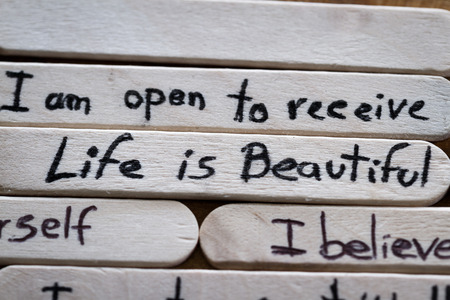 I am open to receive
Life is Beautiful
rself
I believe